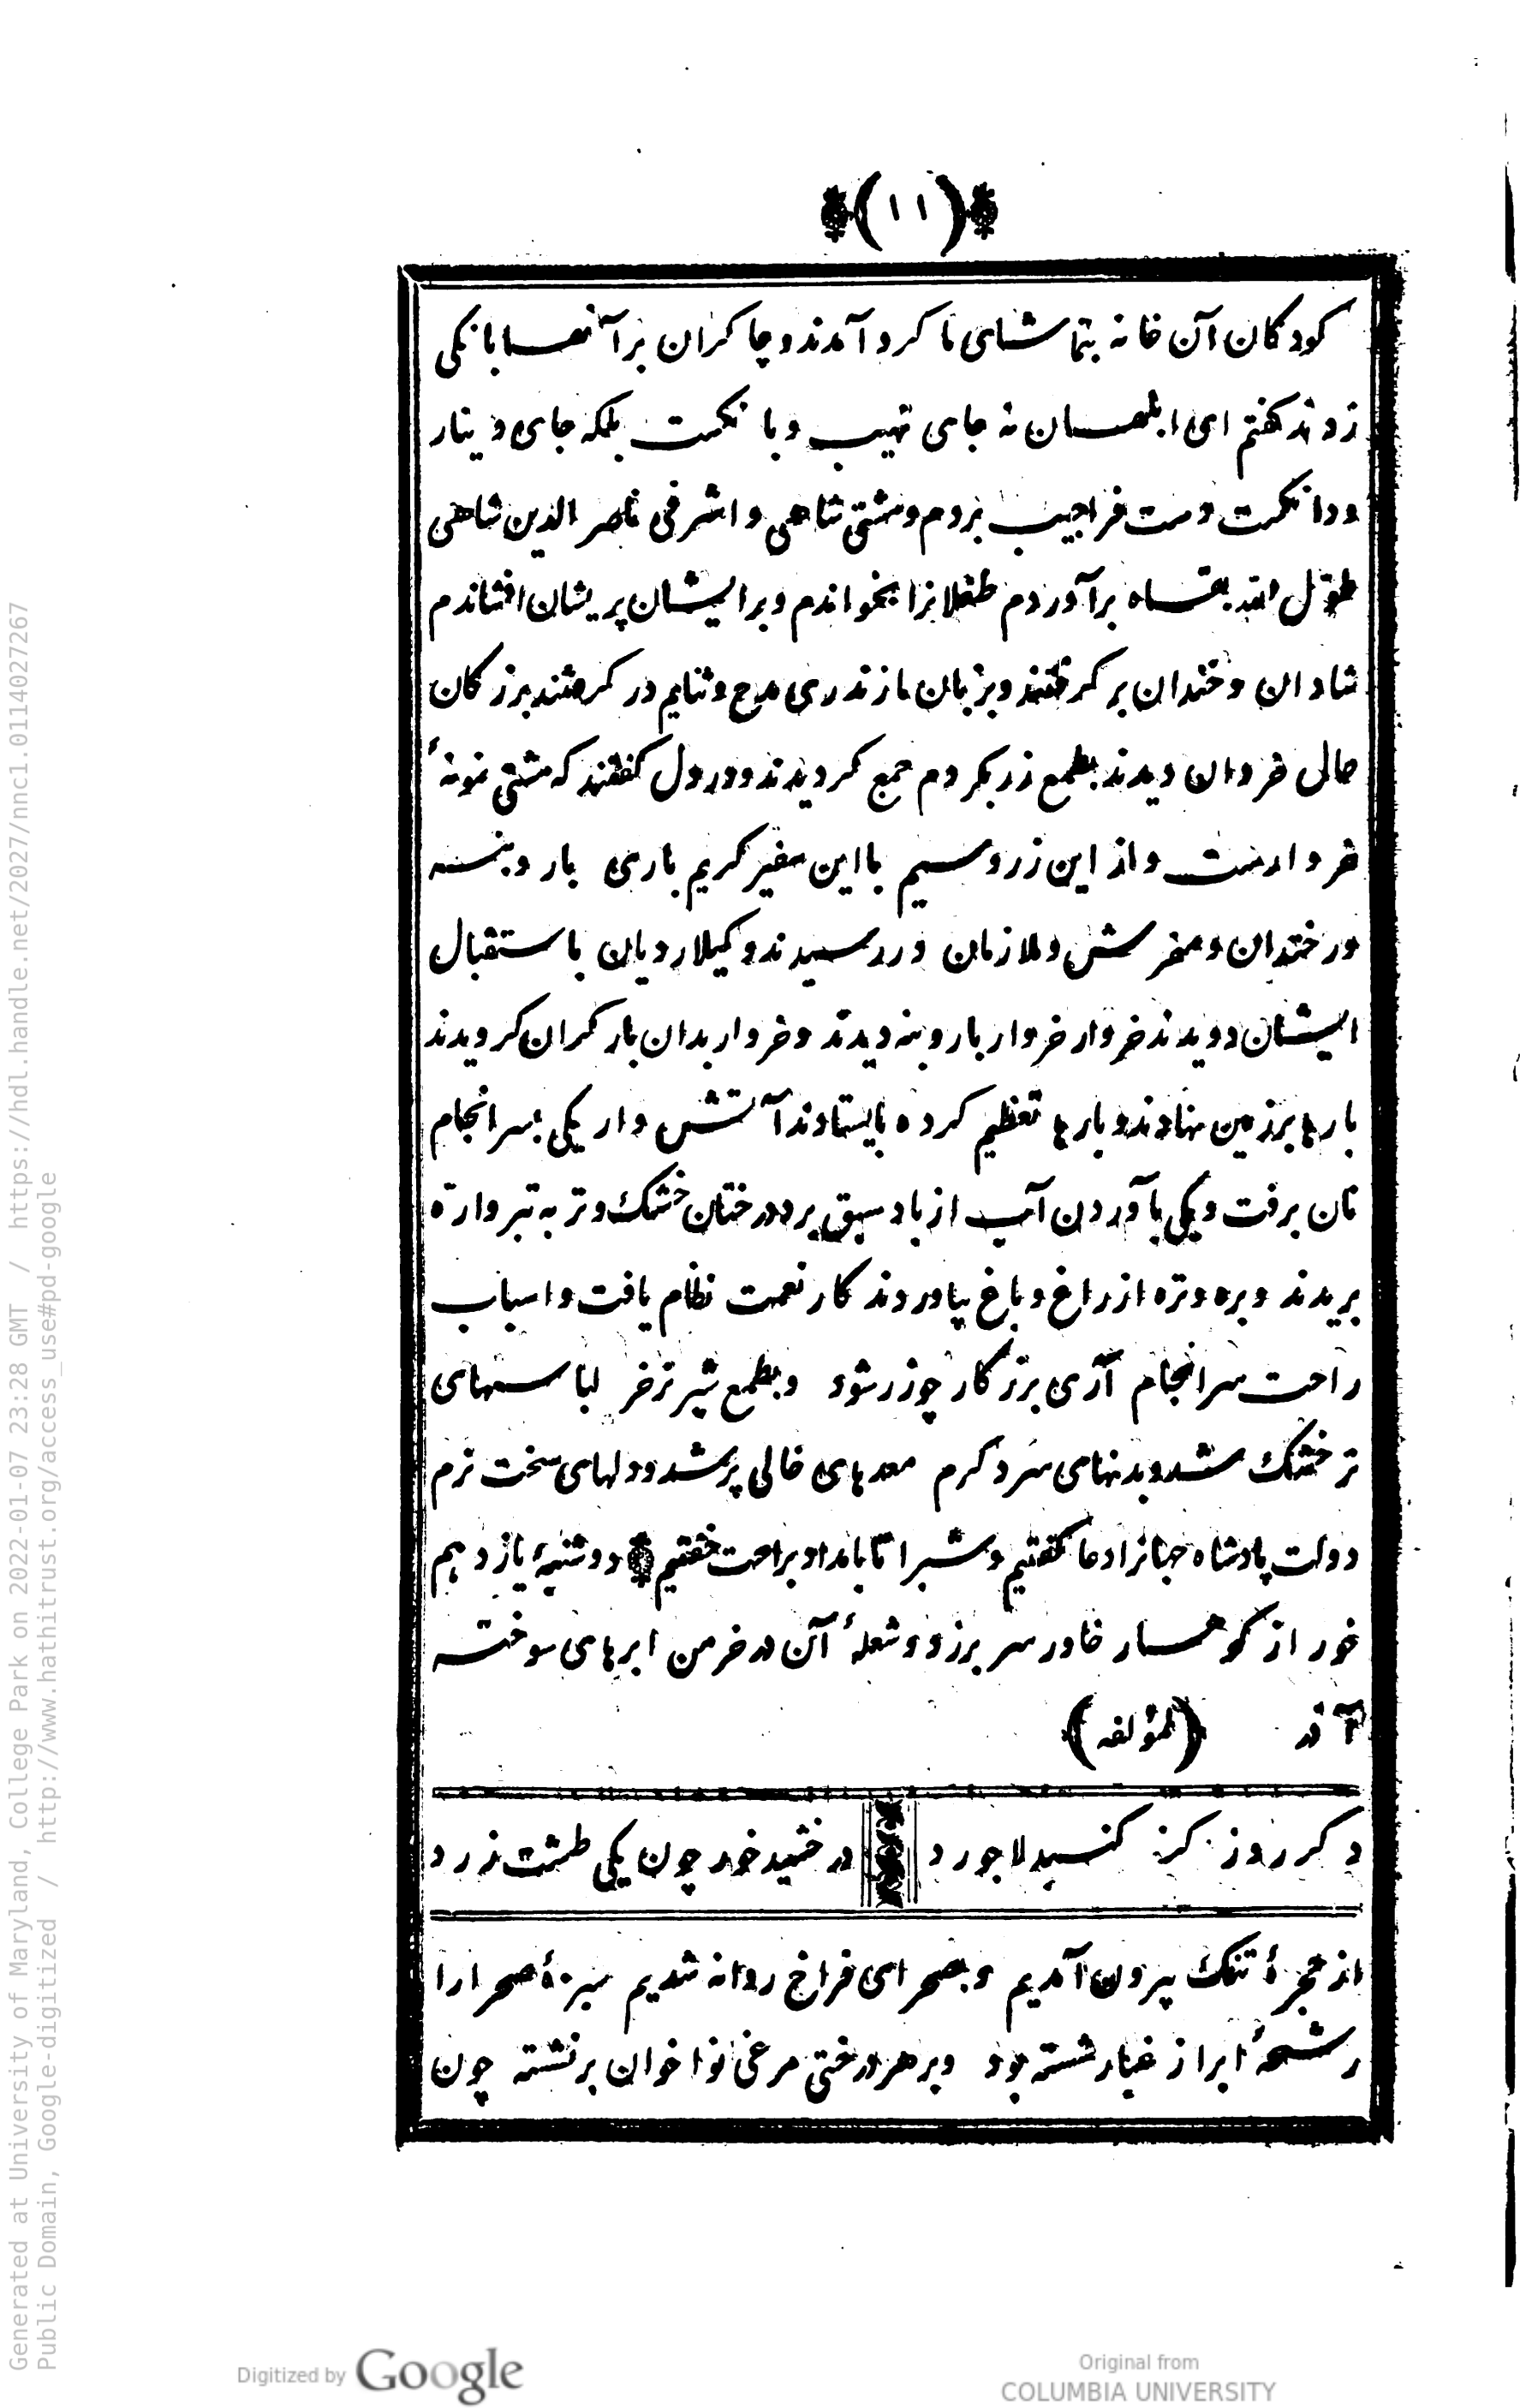 (۱۱)
کودکان آن خانه بتماشای ما کرد آمدند و چاکران بر آنها بانکی
زدند کفتم ای ابلهان نه جای نهیب و بانکست بلکه جای دینار
و دانکست دست فرا جیب بردم و مشتی شاهی و اشرفی ناصر الدین شاهی
بر آوردم طفلانرا بخواندم و بر ایشان پریشان افشاندم
شادان و خندان بر کرفتند و بزبان مازندری مدح و ثنایم در کرفتند برزکان
حالی فروان دیدند بطمع زر بکردم جمع کردیدند و در دل کفتند که مشتی نمونهٔ
خروارست و از این زر و سیم با این سفیر کریم باری بار و بنسه
در ختدان و مفرش و ملازمان در رسیدند و کیلاردیان باستقبال
ایشان دویدند خروار خروار بار و بنه دیدند و خروار بدان بار کران کرویدند
بارها بر زمین نهادند و بارها تعظیم کرده بایستادند آتش وار یکی بسر انجام
نان برفت و یکی بآوردن آب از باد سبق برد درختان خشک و تر به تبر واره
بریدند و بره و تره از راغ و باغ بیاوردند کار نعمت نظام یافت و اسباب
راحت سرانجام آری برز کار چو زر شود و بطمع شیر نر خر لباسهای
تر خشک شد و بدنهای سرد کرم معدهای خالی پر شد و دلهای سخت نرم
دولت پادشاه جهانرا دعا کفتیم و شبرا تا بامداد براحت خفتیم دوشنبهٔ یازدهم
خور از کوهسار خاور سر برزد و شعلهٔ آن در خرمن ابرهای سوخته
آذر (لمؤلفه)
دکر روز کز کنبد لاجورد درخشید خور چون یکی طشت زرد
از حجرهٔ تنک بیرون آمدیم و بصحرای فراخ روانه شدیم سبزهٔ صحرا را
رشحهٔ ابر از غبار شسته بود و بر هر درختی مرغی نوا خوان بر نشسته چون
Digitized by Google
Original from
COLUMBIA UNIVERSITY
Generated at University of Maryland, College Park on 2022-01-07 23:28 GMT / https://hdl.handle.net/2027/nnc1.0114027267
Public Domain, Google-digitized / http://www.hathitrust.org/access_use#pd-google